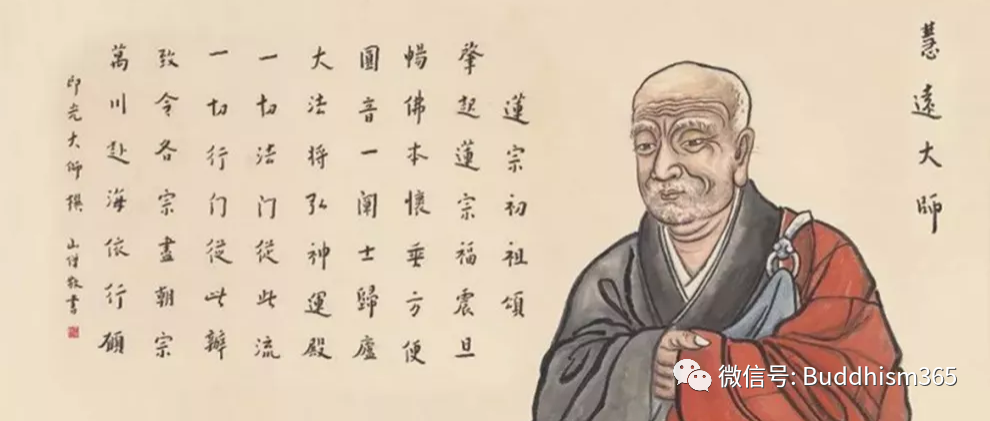 慧遠大師
蓮宗初祖頌
肇起蓮宗福震旦
暢佛本懷垂方便
圓音一闡士歸廬
大法將弘神運殿
一切法门從此流
一切行门從此辦
致令各宗盡朝宗
萬川赴海依行願
印光大师撰 山僧敬書
微信号: Buddhism365